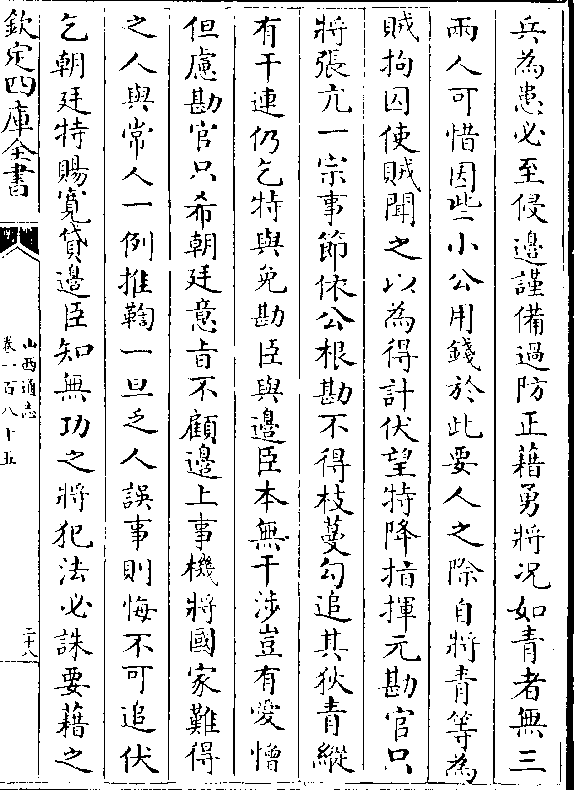 兵為患必至侵邊謹備過防正藉勇將况如青者無三
兩人可惜因些小公用錢於此要人之際自將青等為
賊拘囚使賊聞之以為得計伏望特降指揮元勘官只
將張亢一宗事節依公根勘不得枝蔓勾追其狄青縱
有干連仍乞特與免勘臣與邊臣本無干涉豈有愛憎
但慮勘官只希朝廷意㫖不顧邊上事機將國家難得
之人與常人一例推鞫一旦乏人誤事則悔不可追伏
乞朝廷特賜寛貸邊臣知無功之將犯法必誅要藉之
欽定四庫全書
山西通志
卷一百八十五
二十八